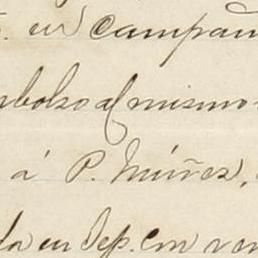 en campañ
mbolso al mismo
á P. Núñez,
da en Dep. con